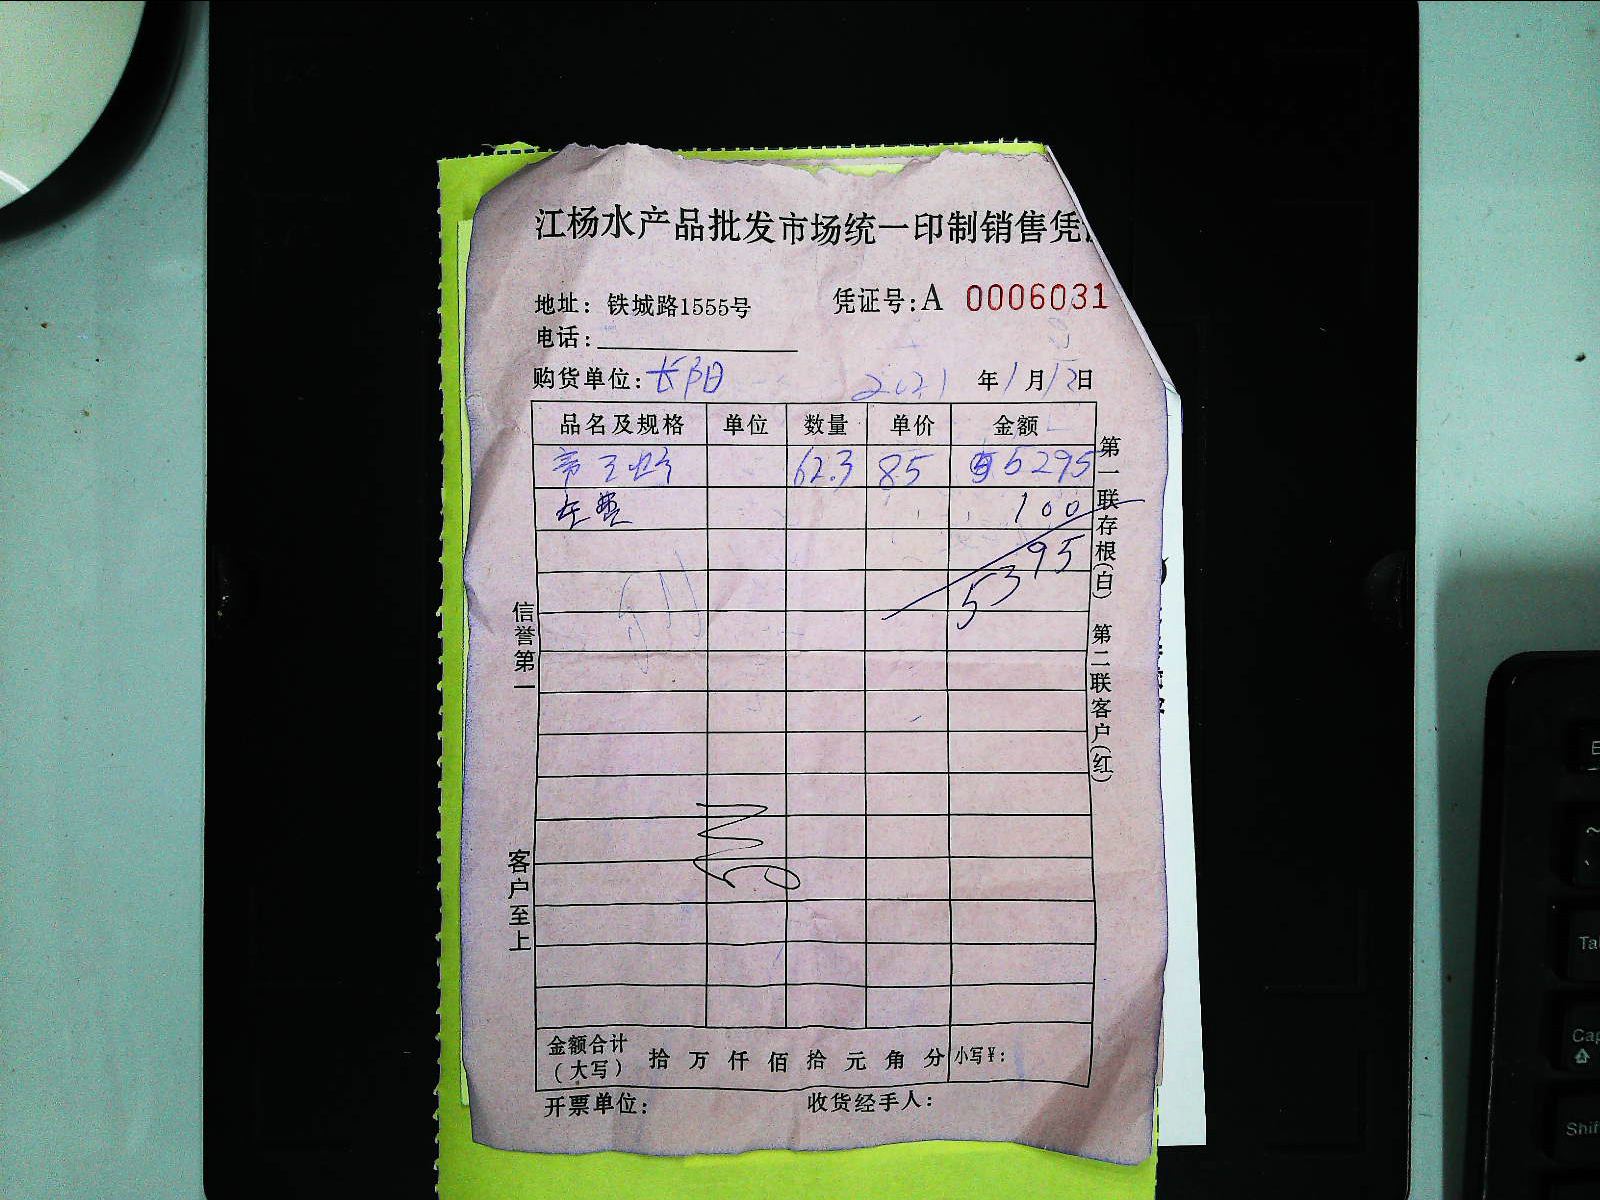 江杨水产品批发市场统一印制销售凭
地址：铁城路1555号
凭证号：A 0006031
电话：
购货单位：长阳
2021年1月12日
品名及规格 单位 数量 单价 金额
帝王蟹 62.3 85 5295
车费 100
5395
第一联存根（白） 第二联客户（红）
信誉第一
客户至上
金额合计（大写） 拾 万 仟 佰 拾 元 角 分 小写￥：
开票单位： 收货经手人：